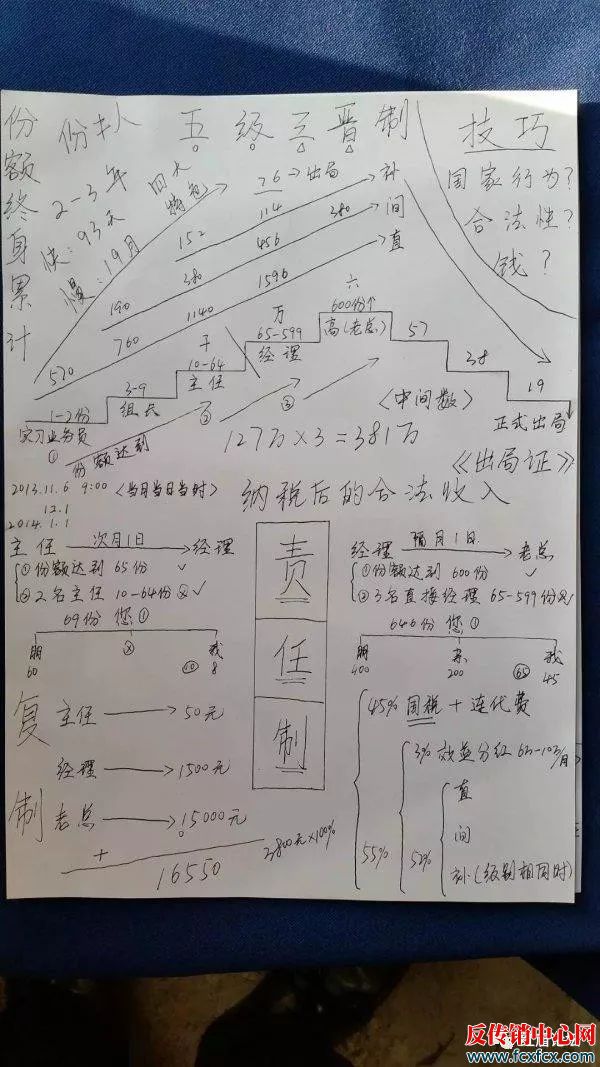 份额终身累计
份 扌人 五级三晋制
技巧
国家行为?
合法性?
钱?
2-3年
快:93天
慢:19月
四大特色
76→出局
补
152 114
间
190 380 456 380
直
570 760 1140 1596
六
600份个
高(老总)
万
65-599
经理
干
10-64
主任
3-9
组长
1-2份
实习业务员
①
②
③
份额达到
57
38
19
<中间数>
正式出局
127万×3=381万
《出局证》
2013.11.6 9:00 <当月当日当时>
12.1
2014.1.1
纳税后的合法收入
主任 次月1日 经理
①份额达到65份 ✓
②2名主任10-64份 ✓
69份 您①
朋 我
60 ⑩ 8
责任制
经理 隔月1日 老总
①份额达到600份 ✓
②3名直接经理65-599份 ✓
646份 您①
朋 亲 我
400 200 65 45
复制
主任 50元
经理 1500元
老总 15000元
+
16550
3800元×100%
45% 国税+连代费
55%
3% 效益分红
52%
直
间
补(级别相同时)
反传销中心网
www.fcxfcx.com